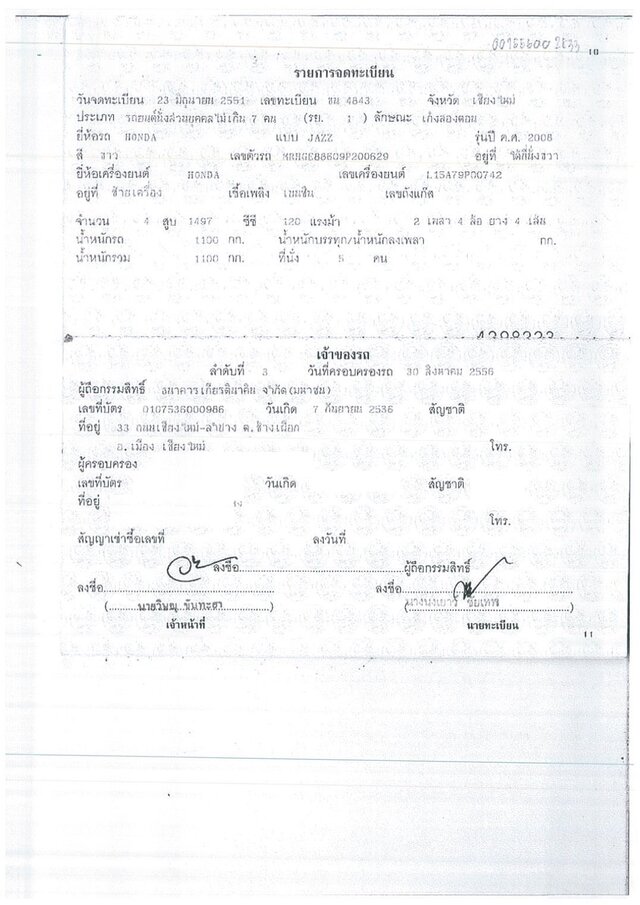 10
รายการจดทะเบียน
วันจดทะเบียน 23 มิถุนายน 2551 เลขทะเบียน ขน 4843 จังหวัด เชียงใหม่
ประเภท รถยนต์นั่งส่วนบุคคลไม่เกิน 7 คน (รย. 1 ) ลักษณะ เก๋งสองตอน
ยี่ห้อรถ HONDA แบบ JAZZ รุ่นปี ค.ศ. 2008
สี ขาว เลขตัวรถ MRHGE88609P200629 อยู่ที่ ใต้ที่นั่งขวา
ยี่ห้อเครื่องยนต์ HONDA เลขเครื่องยนต์ L15A79P00742
อยู่ที่ ซ้ายเครื่อง เชื้อเพลิง เบนซิน เลขถังแก๊ส
จำนวน 4 สูบ 1497 ซีซี 120 แรงม้า 2 เพลา 4 ล้อ ยาง 4 เส้น
น้ำหนักรถ 1100 กก. น้ำหนักบรรทุก/น้ำหนักลงเพลา กก.
น้ำหนักรวม 1100 กก. ที่นั่ง 5 คน
เจ้าของรถ
ลำดับที่ 3 วันที่ครอบครองรถ 30 สิงหาคม 2556
ผู้ถือกรรมสิทธิ์ ธนาคารเกียรตินาคิน จำกัด(มหาชน)
เลขที่บัตร 0107536000986 วันเกิด 7 กันยายน 2536 สัญชาติ
ที่อยู่ 33 ถนนเชียงใหม่-ลำปาง ต.ช้างเผือก
อ.เมือง เชียงใหม่ โทร.
ผู้ครอบครอง
เลขที่บัตร วันเกิด สัญชาติ
ที่อยู่
โทร.
สัญญาเช่าซื้อเลขที่ ลงวันที่
ลงชื่อ..............................ผู้ถือกรรมสิทธิ์
ลงชื่อ.............................. ลงชื่อ..............................
(.......นายวิษณุ ขันทะตา.......) (นางนงเยาว์ ชัยเทพ)
เจ้าหน้าที่ นายทะเบียน
11